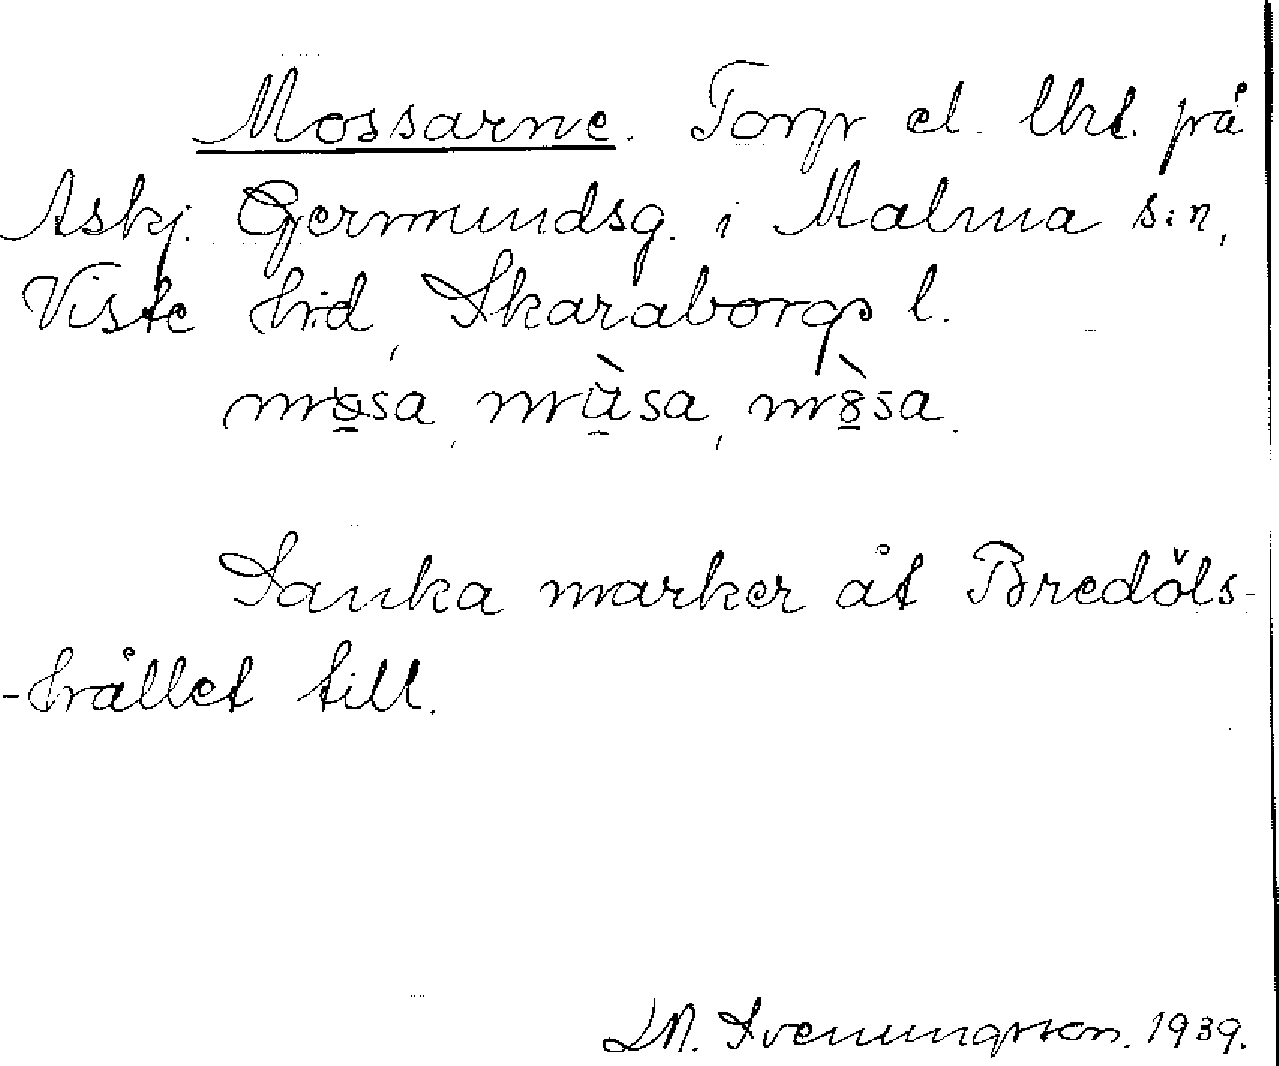 Mossarne. Torp el. lht. på
Askj. Germundsg. i Malma s:n,
Viste hrd, Skaraborgs l.
mosa, mùsa, mòsa.
Sanka marker åt Bredöls-
-hållet till.
D.N. Svenungsson. 1939.